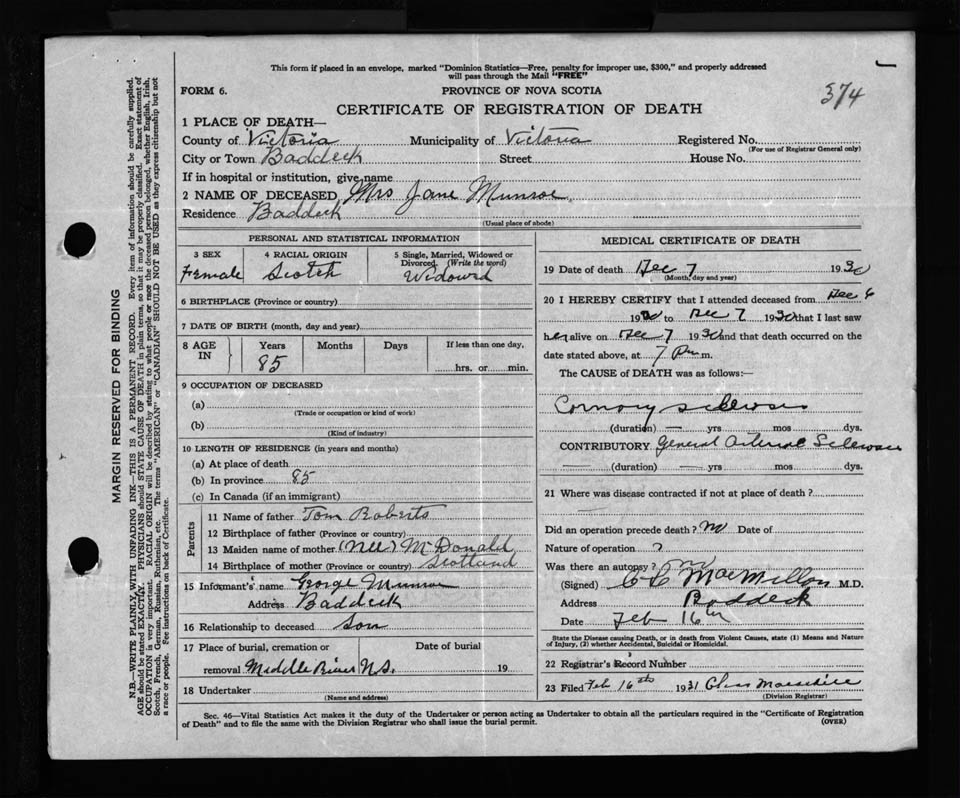 This form if placed in an envelope, marked "Dominion Statistics—Free, penalty for improper use, $300," and properly addressed
will pass through the Mail "FREE"
FORM 6.
PROVINCE OF NOVA SCOTIA
374
CERTIFICATE OF REGISTRATION OF DEATH
1 PLACE OF DEATH—
County of Victoria Municipality of Victoria Registered No.
(For use of Registrar General only)
City or Town Baddeck Street House No.
If in hospital or institution, give name
2 NAME OF DECEASED Mrs Jane Munroe
Residence Baddeck
(Usual place of abode)
PERSONAL AND STATISTICAL INFORMATION
3 SEX 4 RACIAL ORIGIN 5 Single, Married, Widowed or
Divorced. (Write the word)
Female Scotch Widowed
6 BIRTHPLACE (Province or country)
7 DATE OF BIRTH (month, day and year)
8 AGE IN Years Months Days If less than one day,
85 hrs. or min.
9 OCCUPATION OF DECEASED
(a)
(Trade or occupation or kind of work)
(b)
(Kind of industry)
10 LENGTH OF RESIDENCE (in years and months)
(a) At place of death
(b) In province 85
(c) In Canada (if an immigrant)
Parents
11 Name of father Tom Roberts
12 Birthplace of father (Province or country)
13 Maiden name of mother (Nee) McDonald
14 Birthplace of mother (Province or country) Scotland
15 Informant's name George Munroe
Address Baddeck
16 Relationship to deceased Son
17 Place of burial, cremation or Date of burial
removal Middle River N.S. 19
18 Undertaker
(Name and address)
MEDICAL CERTIFICATE OF DEATH
19 Date of death Dec 7 1930
(Month, day and year)
20 I HEREBY CERTIFY that I attended deceased from Dec 6
1930 to Dec 7 1930 that I last saw
her alive on Dec 7 1930 and that death occurred on the
date stated above, at 7 P.m.
The CAUSE of DEATH was as follows:—
Cornory sclerosis
(duration) — yrs mos dys.
CONTRIBUTORY General Arterial Sclerosis
— (duration) — yrs mos dys.
21 Where was disease contracted if not at place of death ?
Did an operation precede death ? no Date of
Nature of operation ?
Was there an autopsy ? no
(Signed) C L MacMillan M.D.
Address Baddeck
Date Feb 16th
State the Disease causing Death, or in death from Violent Causes, state (1) Means and Nature
of Injury, (2) whether Accidental, Suicidal or Homicidal.
22 Registrar's Record Number
23 Filed Feb 16th 1931
(Division Registrar)
Sec. 46—Vital Statistics Act makes it the duty of the Undertaker or person acting as Undertaker to obtain all the particulars required in the "Certificate of Registration
of Death" and to file the same with the Division Registrar who shall issue the burial permit.
(OVER)
MARGIN RESERVED FOR BINDING
N.B.—WRITE PLAINLY, WITH UNFADING INK—THIS IS A PERMANENT RECORD. Every item of information should be carefully supplied.
AGE should be stated EXACTLY. PHYSICIANS should STATE CAUSE OF DEATH in plain terms, so that it may be properly classified. Exact statement of
OCCUPATION is very important. RACIAL ORIGIN will be described by stating to what people or race the deceased person belonged, whether English, Irish,
Scotch, French, German, Russian, Ruthenian, etc. The terms "AMERICAN" or "CANADIAN" SHOULD NOT BE USED as they express citizenship but not
a race or people. See instructions on back of Certificate.